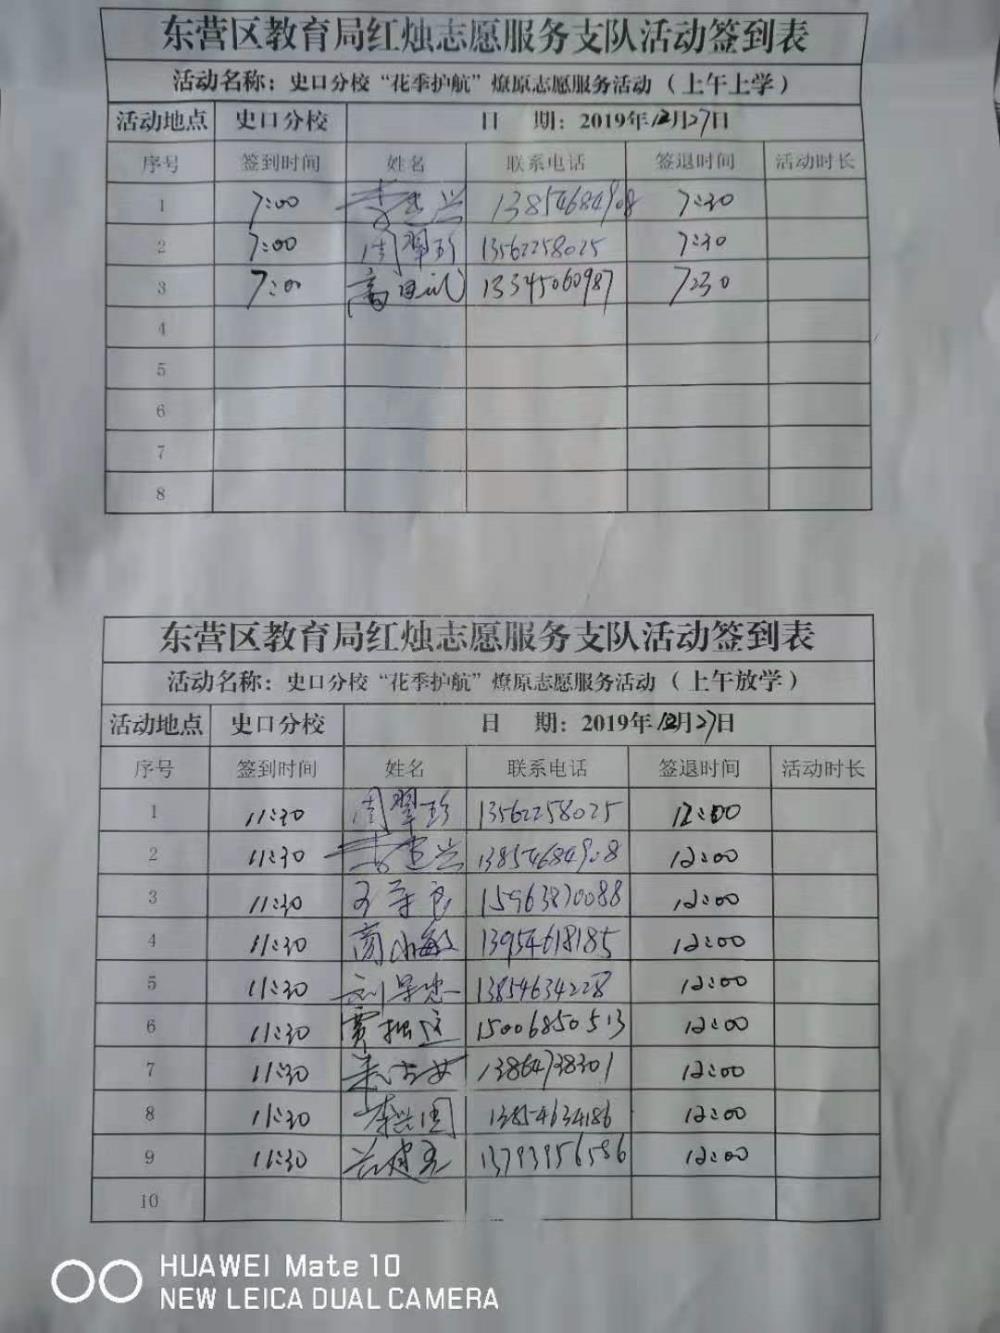 东营区教育局红烛志愿服务支队活动签到表
活动名称：史口分校“花季护航”燎原志愿服务活动（上午上学）
活动地点 史口分校 日 期：2019年12月27日
序号 签到时间 姓名 联系电话 签退时间 活动时长
1 7:00 13854684908 7:30
2 7:00 周翠珍 13562258025 7:30
3 7:00 13345060987 7:30
4
5
6
7
8
东营区教育局红烛志愿服务支队活动签到表
活动名称：史口分校“花季护航”燎原志愿服务活动（上午放学）
活动地点 史口分校 日 期：2019年12月27日
序号 签到时间 姓名 联系电话 签退时间 活动时长
1 11:30 周翠珍 13562258025 12:00
2 11:30 13854684908 12:00
3 11:30 15963870088 12:00
4 11:30 商小敏 13954618185 12:00
5 11:30 13854634228 12:00
6 11:30 15006850513 12:00
7 11:30 13864738301 12:00
8 11:30 李兴国 13854634186 12:00
9 11:30 13793956586 12:00
10
HUAWEI Mate 10
NEW LEICA DUAL CAMERA